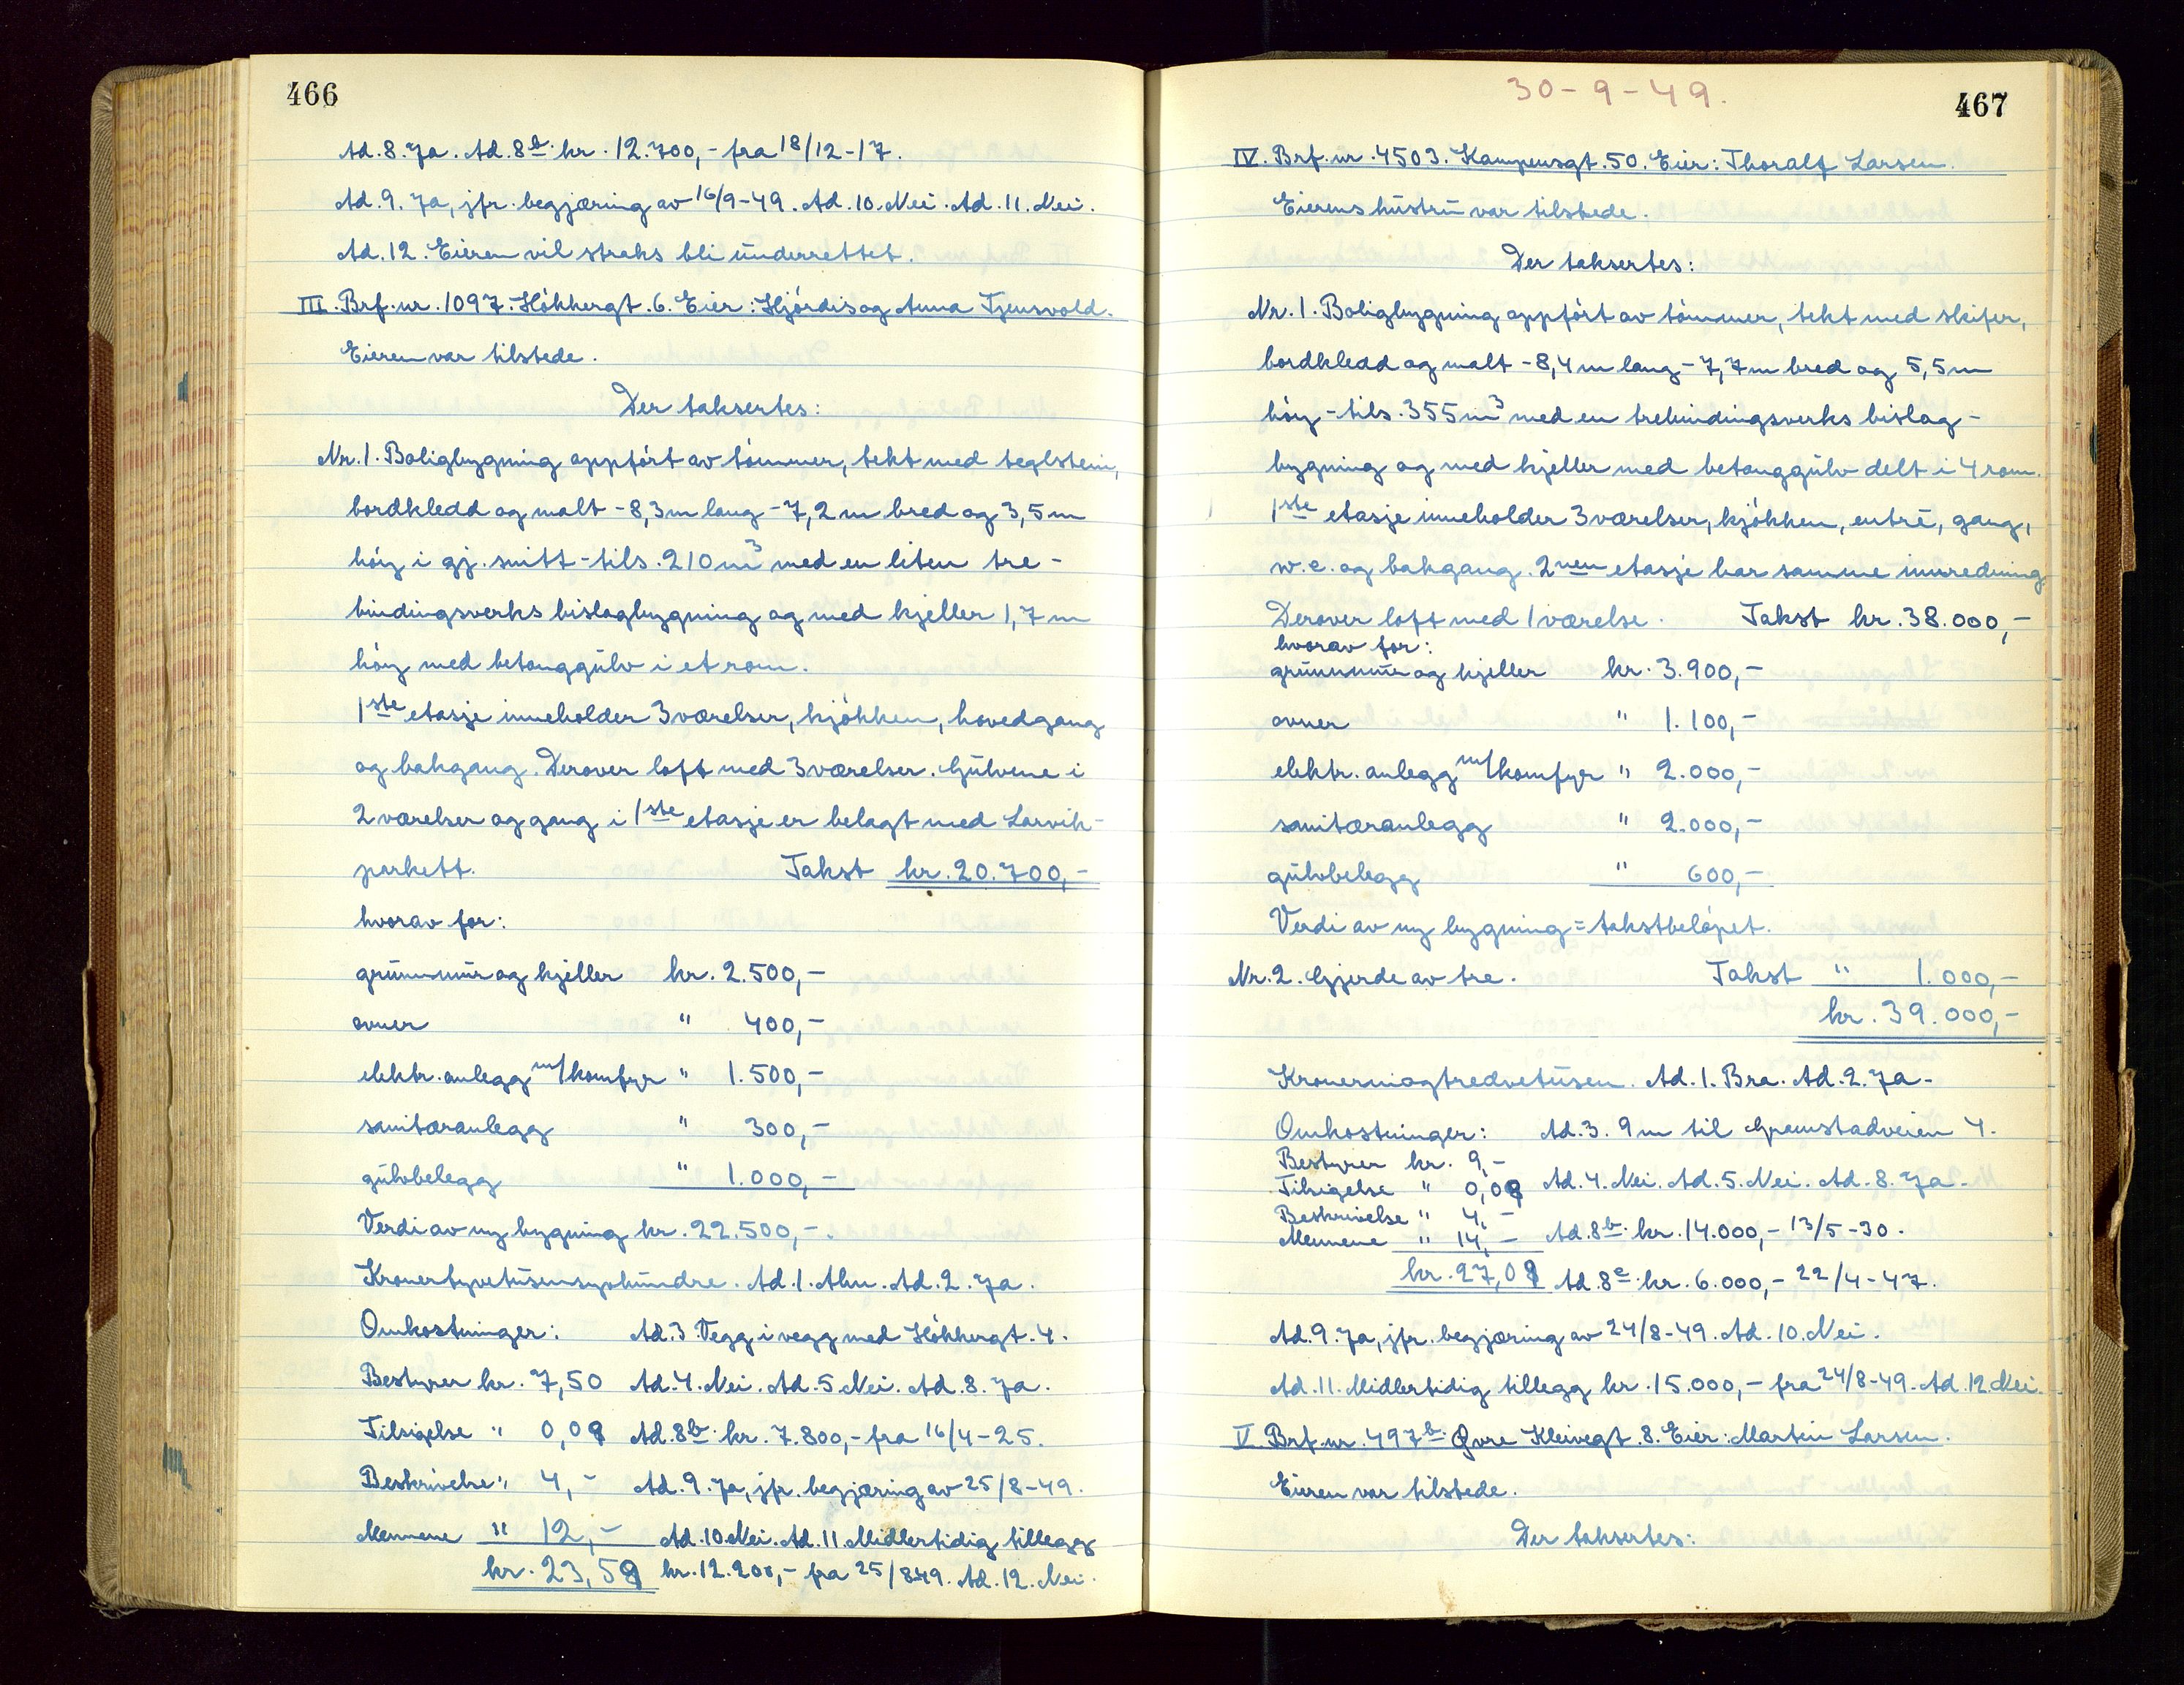 466
Ad. 8. Ja. Ad. 8 b. kr. 12.700,- fra 18/12-17.
Ad. 9. Ja, jfr. begjæring av 16/9-49. Ad. 10. Nei. Ad. 11. Nei.
Ad. 12. Eieren vil straks bli underrettet.
III. Brf. nr. 1097. Hökkergt. 6. Eier: Hjördis og Anna Tjensvold.
Eieren var tilstede.
Der taksertes:
Nr. 1. Boligbygning oppfört av tömmer, tekt med teglstein,
bordkledd og malt - 8,3 m lang - 7,2 m bred og 3,5 m
höy i gj. snitt - tils. 210 m3 med en liten tre-
bindingsverks bislagbygning og med kjeller 1,7 m
höy med betonggulv i et rom.
1ste etasje inneholder 3 værelser, kjökken, hovedgang
og bakgang. Derover loft med 3 værelser. Gulvene i
2 værelser og gang i 1ste etasje er belagt med Larvik-
parkett. Takst kr. 20.700,-
hvorav for:
grunnmur og kjeller kr. 2.500,-
ovner " 400,-
elektr. anlegg m/komfyr " 1.500,-
sanitæranlegg " 300,-
gulvbelegg " 1.000,-
Verdi av ny bygning kr. 22.500,-.
Kronertyvetusensyvhundre. Ad. 1. Alm. Ad. 2. Ja.
Omkostninger: Ad. 3. Vegg i vegg med Hökkergt. 4.
Bestyrer kr. 7,50 Ad. 4. Nei. Ad. 5. Nei. Ad. 8. Ja.
Tilsigelse " 0,08 Ad. 8 b. kr. 7.800,- fra 16/4-25.
Beskrivelse " 4,- Ad. 9. Ja, jfr. begjæring av 25/8-49.
Mennene " 12,- Ad. 10. Nei. Ad. 11. Midlertidig tillegg
kr. 23,58 kr. 12.200,- fra 25/8-49. Ad. 12. Nei.
30-9-49.
467
IV. Brf. nr. 4503. Kampensgt. 50. Eier: Thoralf Larsen.
Eierens hustru var tilstede.
Der taksertes:
Nr. 1. Boligbygning oppfört av tömmer, tekt med skifer,
bordkledd og malt - 8,4 m lang - 7,7 m bred og 5,5 m
höy - tils. 355 m3 med en trebindingsverks bislag-
bygning og med kjeller med betonggulv delt i 4 rom.
1ste etasje inneholder 3 værelser, kjökken, entré, gang,
w.c. og bakgang. 2nen etasje har samme innredning
Derover loft med 1 værelse. Takst kr. 38.000,-
hvorav for:
grunnmur og kjeller kr. 3.900,-
ovner " 1.100,-
elektr. anlegg m/komfyr " 2.000,-
sanitæranlegg " 2.000,-
gulvbelegg " 600,-
Verdi av ny bygning = takstbelöpet.
Nr. 2. Gjerde av tre. Takst " 1.000,-
kr. 39.000,-
Kronerniogtredvetusen. Ad. 1. Bra. Ad. 2. Ja.
Omkostninger: Ad. 3. 9 m til Gramstadveien 4.
Bestyrer kr. 9,-
Tilsigelse " 0,08 Ad. 4. Nei. Ad. 5. Nei. Ad. 8. Ja.
Beskrivelse " 4,-
Mennene " 14,- Ad. 8 b. kr. 14.000,- 13/5-30.
kr. 27,08 Ad. 8 c. kr. 6.000,- 22/4-47.
Ad. 9. Ja, jfr. begjæring av 24/8-49. Ad. 10. Nei.
Ad. 11. Midlertidig tillegg kr. 15.000,- fra 24/8-49. Ad. 12. Nei.
V. Brf. nr. 497 b. Øvre Kleivegt. 8. Eier: Martin Larsen.
Eieren var tilstede.
Der taksertes: